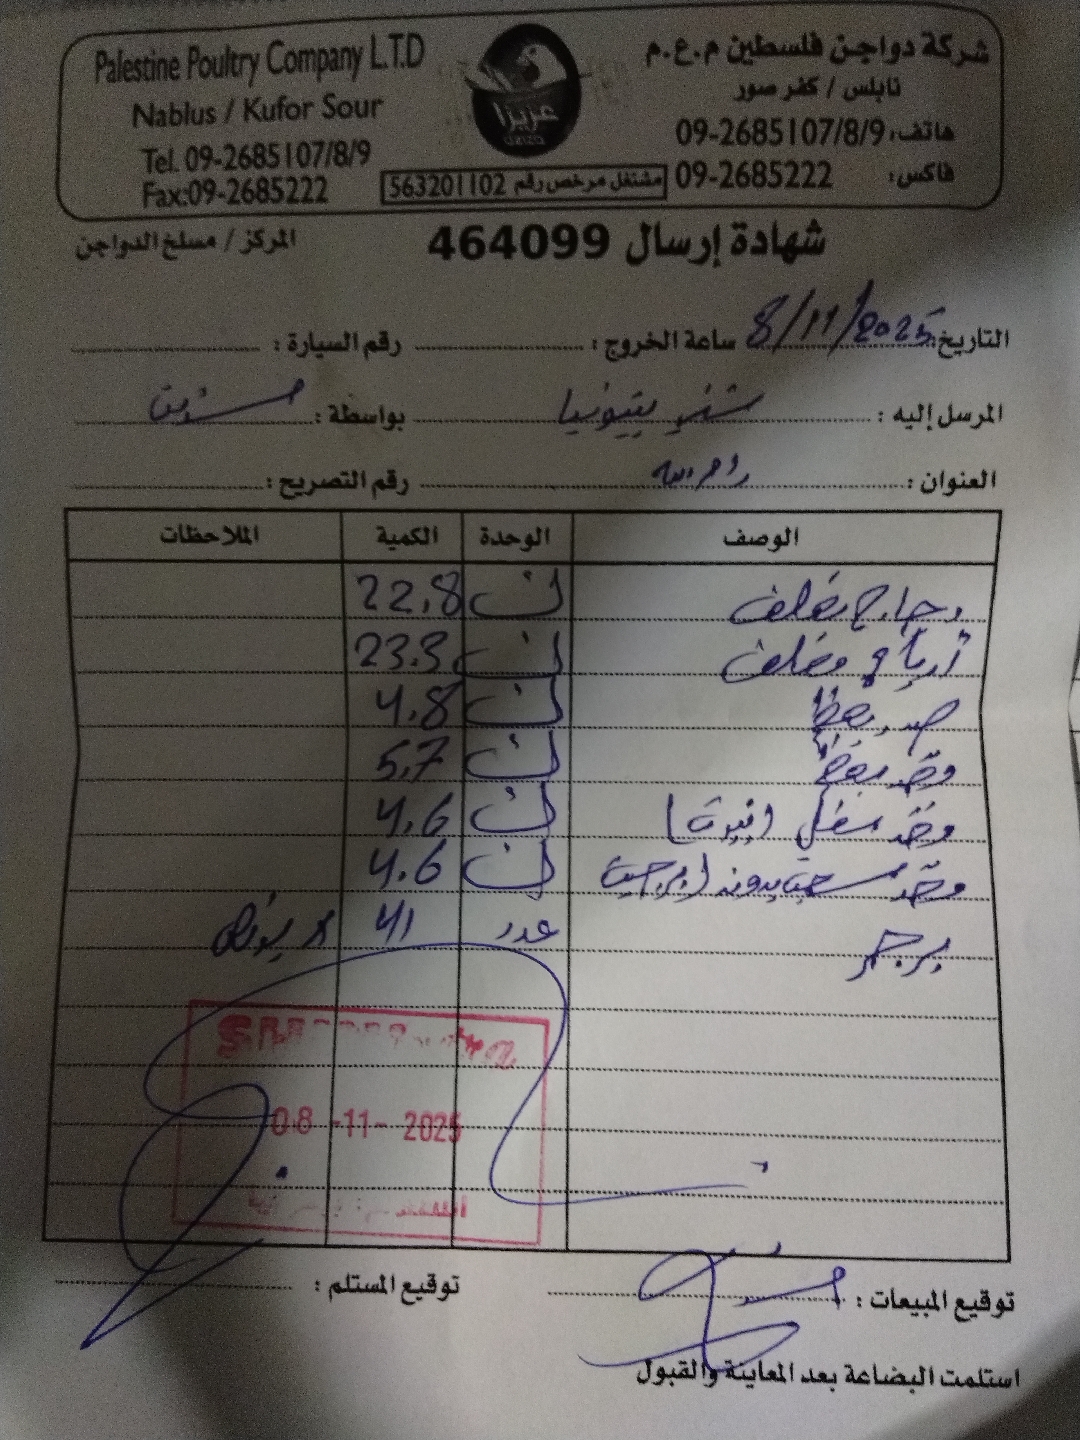 Palestine Poultry Company L.T.D
Nablus / Kufor Sour
Tel. 09-2685107/8/9
Fax:09-2685222
عزيزا
مشتغل مرخص رقم 563201102
شركة دواجن فلسطين م.ع.م
نابلس / كفر صور
هاتف: 09-2685107/8/9
فاكس: 09-2685222
شهادة إرسال 464099
المركز / مسلخ الدواجن
التاريخ: 8/11/2025 ساعة الخروج : رقم السيارة :
المرسل إليه : بواسطة :
العنوان : رام الله رقم التصريح :
الوصف الوحدة الكمية الملاحظات
دجاج مغلف ك 22.8
أرباع مغلف ك 23.3
صدر ك 4.8
فخد ك 5.7
فخد ك 4.6
فخد سحب بدون ك 4.6
برجر عدد 41
08 -11- 2025
توقيع المبيعات : توقيع المستلم :
استلمت البضاعة بعد المعاينة والقبول